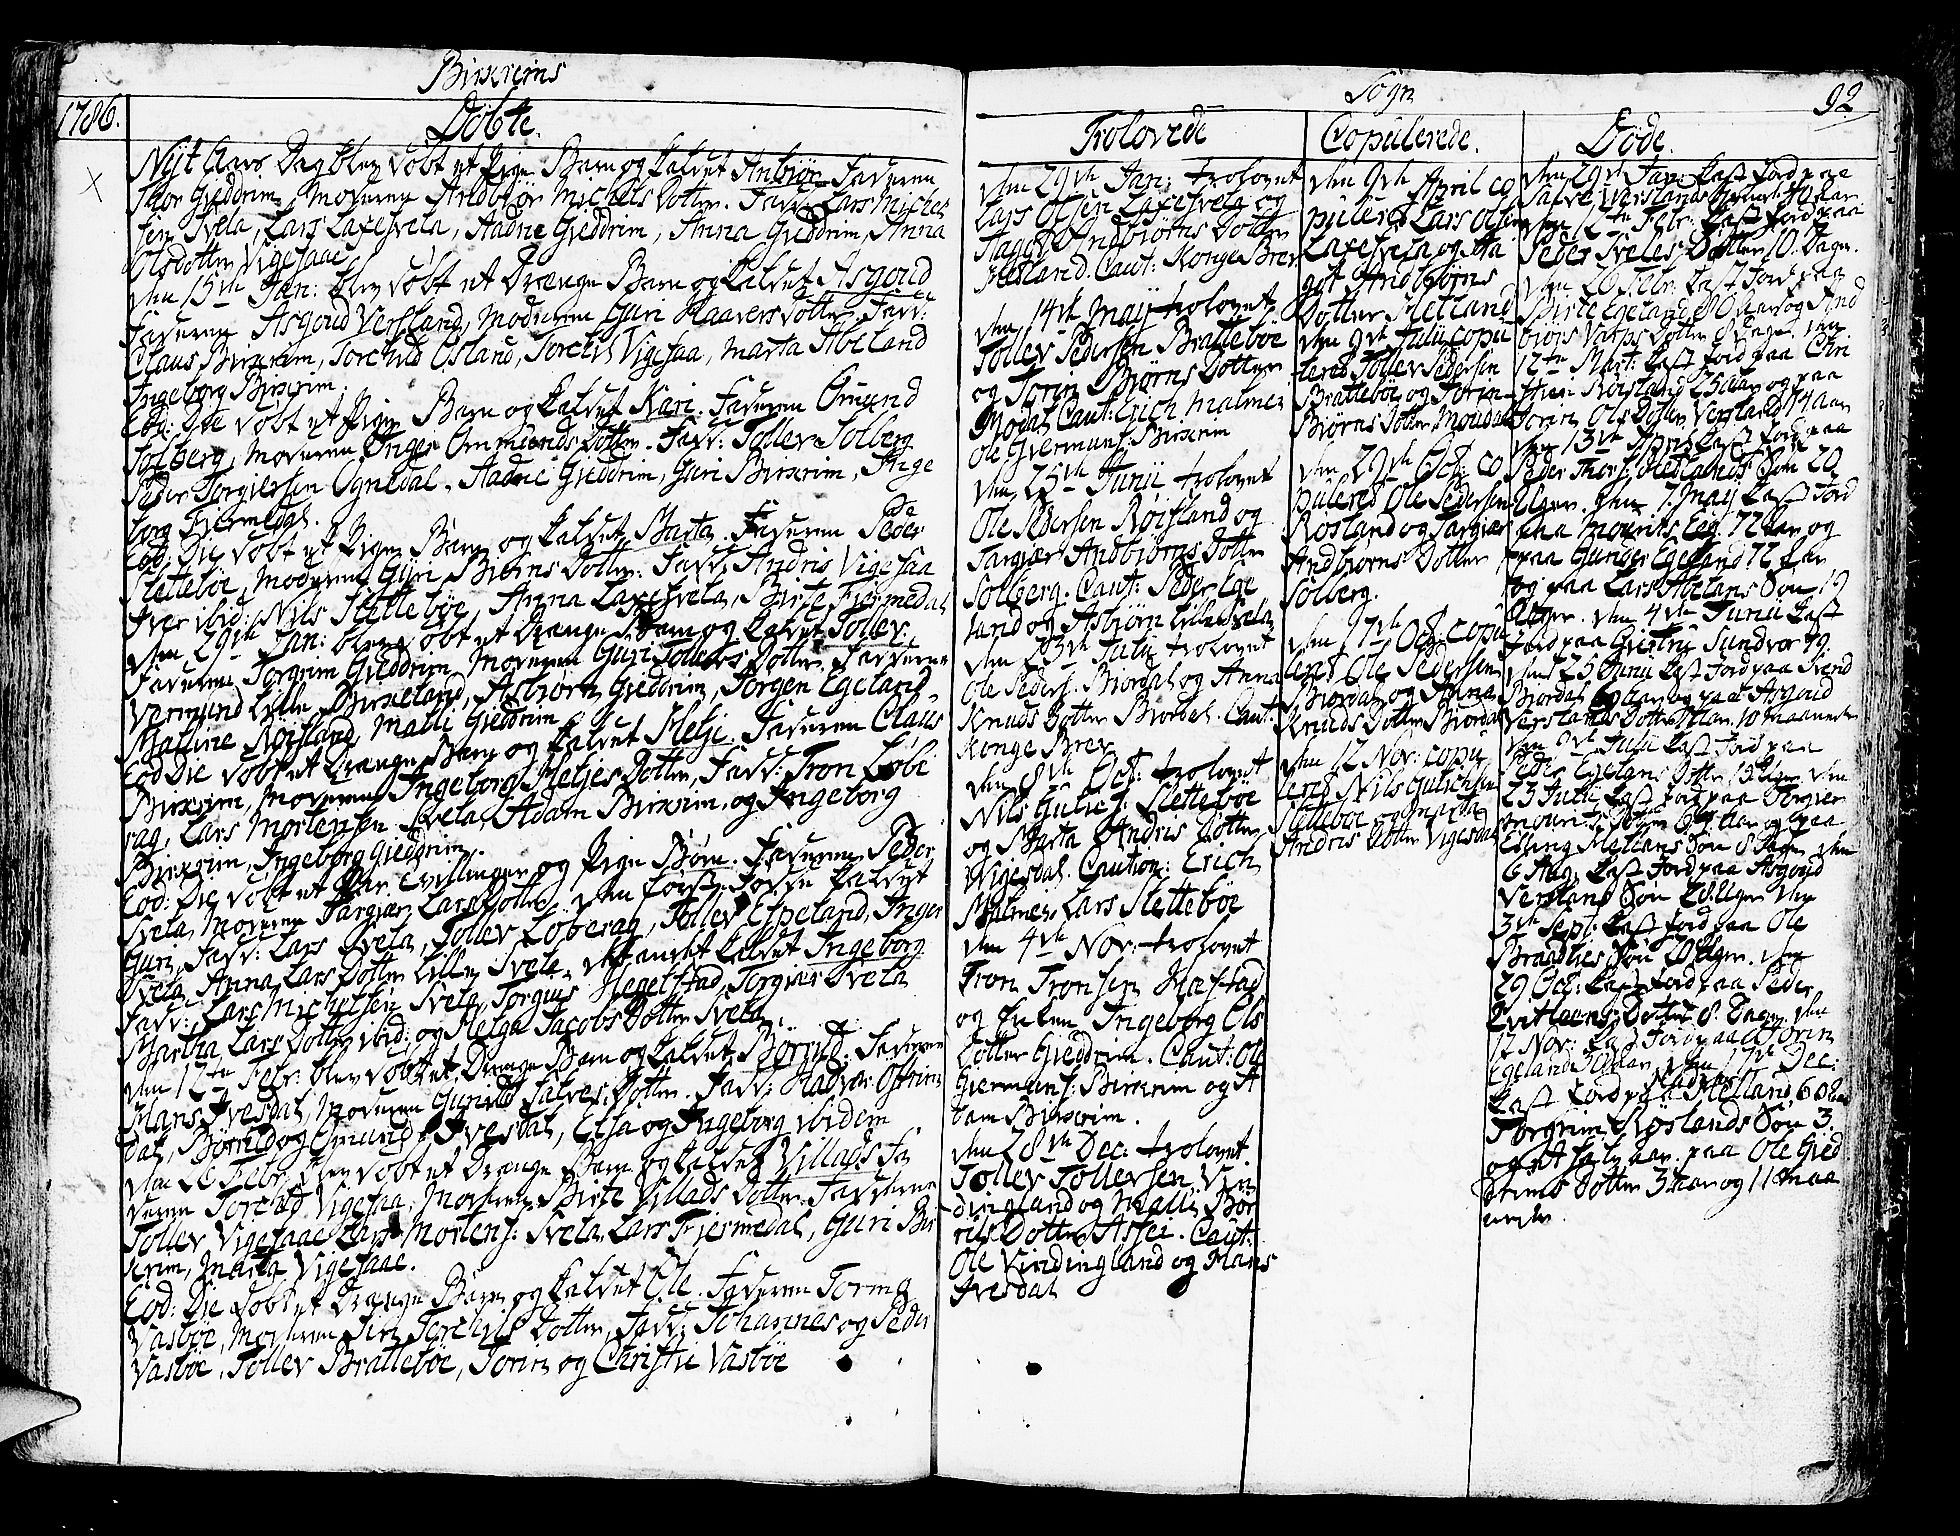 Birkrims
1786.
Döbte.
Nyt Aars Dag blev döbt et Pige Barn og kaldet Anbiör Faderen
Thor Gieddrim, Moderen Andbiör Michels Dotter. Fadd: Lars Michel
sen Svela, Lars Laxesvela, Aadne Gieddrim, Anna Gieddrim, Anna
Olsdotter Vigesaae
den 15de Jan: blev döbt et Drænge Barn og kaldet Asgoud
Faderen Asgoud Versland, Moderen Guri Haavers Dotter. Fadd:
Claus Birkrim, Torchild Osland, Torchel Vigesaa, Marta Abeland
Ingeborg Birkrim.
Eod: Die döbt et Pige Barn og kaldet Kari. Faderen Omund
Solberg, Moderen Inger Ommunds Dotter. Fadd: Tollev Solberg
Peder Torgiersen Ognedal, Aadne Gieddrim, Guri Birkrim, Inge
borg Fiermedal.
Eod: Die döbt et Pige Barn og kaldet Marta. Faderen Peder
Sletteböe, Moderen Guri Biörns Dotter. Fadd: Andris Vigesaa
Iver ibid: Nils Sletteböe, Anna Laxesvela, Birte Fiermedal
den 29de Jan: blev döbt et Drænge Barn og kaldet Tollev.
Faderen Torgrim Gieddrim Moderen Guri Tollevs Dotter. Fadderne
Vermund Lille Birkeland, Asbiörn Gieddrim, Jorgen Egeland
Mallene Röisland, Malli Gieddrim
Eod Die döbt et Drænge Barn og kaldet Helje. Faderen Claus
Birkrim, Moderen Ingeborg Heljes Dotter, Fadd: Tron Löbe
rag, Lars Mortensen Svela, Adam Birkrim, og Ingeborg
Birkrim, Ingeborg Gieddrim.
Eod: Die döbt et Par Tvillinger og Pige Börn. Faderen Peder
Svela, Moderen Targiær Lars Dotter. den först födde kaldet
Guri, Fadd: Lars Svela, Tollev Löberag, Tollev Espeland, Inger
Svela, Anna Lars Dotter Lille Svela. det andet kaldet Ingeborg
Fadd: Lars Michelsen Svela, Torgius Hegelstad, Torgiær Svela
Martha Lars Dotter ibid: og Helga Jacobs Dotter Svela.
den 12te Febr: blev döbt et Drænge Barn og kaldet Börrild. Faderen
Mans Ivesdal, Moderen Gunild Salves Dotter. Fadd: Hadvar
dal, Börrild og Omund Ivesdal, Elsa og Ingeborg ibidem
den 26 Febr. blev döbt et Drænge Barn og kaldet Villads Fa
deren Torchel Vigesaa, Moderen Birte Villads Dotter. Fadderne
Tollev Vigesaae Lars Mortens: Svela, Lars Fiermedal, Guri Bir
krim, Marta Vigesaae.
Eod: Die döbt et Drænge Barn og kaldet Ole. Faderen Tormo
Vasböe, Moderen Siri Torchels Dotter, Fadd: Johannes og Peder
Vasböe, Tollev Bratteböe, Torin og Christie Vasböe
Sogn
92
Trolovede
den 29de Jan: trolovet
Lars Olsen Laxesvela og
Maggt Andbiörns Dotter
Hetland. Caut: Konge Brev
den 14de May trolovet
Tollev Pedersen Bratteböe
og Torin Biörns Dotter
Modal Caut: Erich Malmen
Ole Giermuns: Birkrim
den 25de Junii trolovet
Ole Pedersen Röisland og
Targiær Andbiörns Dotter
Solberg. Caut: Peder Ege
land og Asbiörn Lille Svela
den 23de Julii trolovet
Ole Peders: Biordal og Anna
Knuds Dotter Biordal. Caut:
Konge Brev
den 8de Oct: trolovet
Nils Gulichs: Sletteböe
og Marta Andris Dotter
Vigesdal. Caution: Erich
Malmen Lars Sletteböe
den 4de Nov: trolovet
Tron Tronsen Mæstad
og Enken Ingeborg Ols
Dotter Gieddrim. Caut: Ole
Giermuns: Birkrim og A
dam Birkrim.
den 28de Dec: trolovet
Tollev Tollevsen Vin
dingland og Malli Bör
rils Dotter Assei. Caut:
Ole Vindingland og Mans
Ivesdal
Copulerede.
den 9de April co
puleret Lars Olsen
Laxesvela og Ma
got Andbiörns
Dotter Hetland
den 9de Julii copu
leret Tollev Pedersen
Bratteböe og Torin
Biörns Dotter Moudal
den 29de Oct: co
puleret Ole Pedersen
Rosland og Targiær
Andbiörns Dotter
Solberg.
den 17de Oct: copu
leret Ole Pedersen
Biordal og Anna
Knuds Dotter Biordal
den 12 Nov: copu
leret Nils Gulichsen
Sletteböe og Marta
Andris Dotter Vigesdal
Döde.
den 29de Jan: kast Jord paa
Salve Verslands 70 Aar
den 12te Febr: kast Jord paa
Peder Sveles Dotter 10 Dage.
den 26 Febr. kast Jord paa
Birte Egeland 80 Aar og And
biörs Varps Dotter 8 Dage den
12te Mart: kast Jord paa Chri
sten Röisland 25 aar og paa
Torin Ols Dotter Versland 84 aar
den 13de April kast Jord paa
Peder Thors: Hetlands Sön 20
Uger. den 7. May kast Jord
paa Mourits Ege: 72 Aar og
paa Gunder Egeland 72 aar
og paa Lars Abelans Sön 19
Uger. den 4de Junii kast
Jord paa Giertru Sundvor 79.
den 25 Junii kast Jord paa Svend
Biordal 60 aar og paa Asgoud
Verslands Dotter 1 Aar. 10 maaneder
den 9de Julii kast Jord paa
Peder Egelans Dotter 15 Uger den
23 Julii kast Jord paa Torgier
Mourits Dotter 69 Aar og paa
Elling Mælans Sön 8 Dage den
6 Aug: kast Jord paa Asgoud
Versland Sön 20 Uger den
3de Sept: kast Jord paa Ole
Braadlies Sön 20 Uger. den
29 Oct: kast Jord paa Peder
Evitlaans Dotter 8. Dage. den
12 Nov: kast Jord paa Torin
Egeland 30 Aar, den 17de Dec:
kast Jord paa Hetland 60 Aar
Torgrim Röslands Sön 3.
og et halv aar. paa Ole Gied
drims Dotter 3 aar og 11 maa
neder.